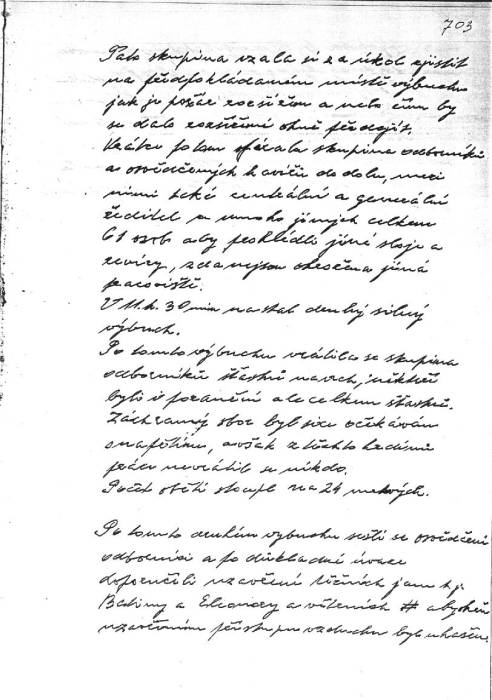 703
Tato skupina vzala si za úkol zjistit
na předpokládaném místě výbuchu
jak je požár rozšířen a nebo čím by
se dalo rozšíření ohně předejít.
Krátce potom sfárala skupina odborníků
a osvědčených havířů do dolu, mezi
nimi také centrální a generální
ředitel a mnoho jiných celkem
61 osob aby prohlédli jiné sloje a
revíry, zda nejsou ohrožena jiná
pracoviště.
V 11.h. 30 min nastal druhý silný
výbuch.
Po tomto výbuchu vrátila se skupina
odborníků šťastně na vrch, někteří
byli i poranění ale celkem šťastně.
Záchranný sbor byl sice očekáván
s napětím, avšak z těchto hrdinů
práce nevrátil se nikdo.
Počet obětí stoupl na 24 mrtvých.
Po tomto druhém výbuchu sešli se osvědčení
odborníci a po důkladné úvaze
doporučili uzavření těžních jam t.j.
Bettiny a Eleonory a větrních # aby
uzavřením přístupu vzduchu byl uhašen